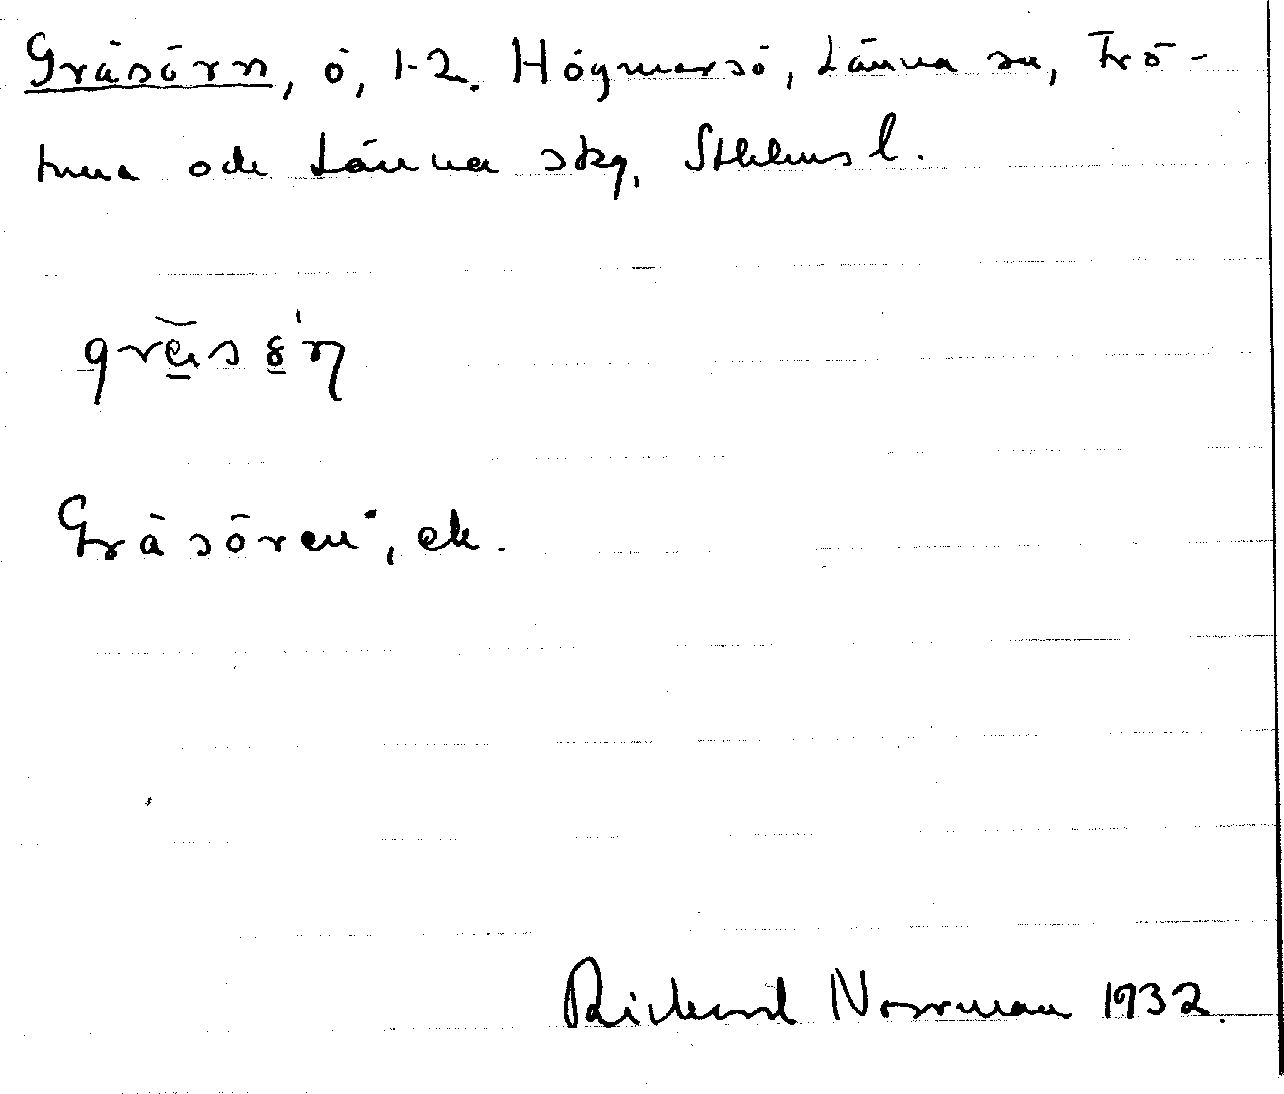 Gräsörn, ö, 1-2. Högmarsö, Länna sn, Frö-
tuna och Länna skg, Sthlms l.
Gräsören", ek.
Rickard Norrman 1932.